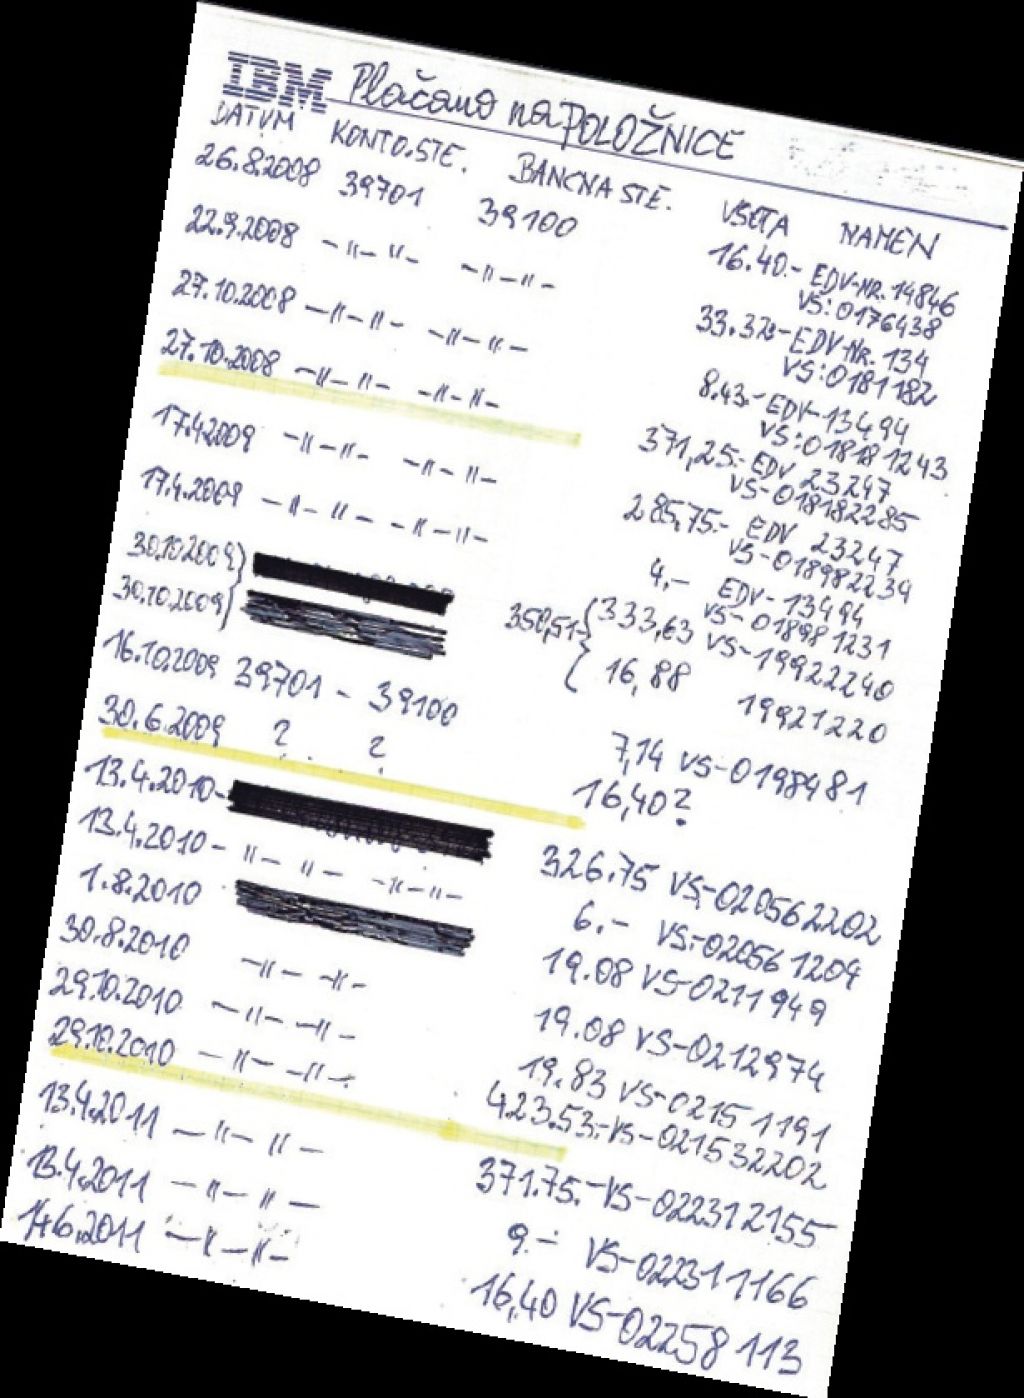 IBM Plačano na POLOŽNICE
DATUM KONTO.ŠTE. BANČNA ŠTE. VSOTA NAMEN
26.8.2008 39701 39100 16.40.- EDV-NR. 14846
VS: 0176438
22.9.2008 -"- "- -"-"- 33.37.- EDV-Nr. 134
VS: 0181182
27.10.2008 -"-"- -"-"- 8.43.- EDV-13494
VS: 01818 1243
27.10.2008 -"-"- -"-"- 371,25.- EDV 23247
VS-018182285
17.4.2009 -"-"- -"-"- 285,75.- EDV 23247
VS-018982239
17.4.2009 -"-"- -"-"- 4,- EDV-13494
VS-01898 1231
30.10.2009 350,51- 333,63 VS-19922240
30.10.2009 16,88 19921220
16.10.2009 39701 - 39100 7,14 VS-0198481
30.6.2009 ? ? 16,40?
13.4.2010- 326.75 VS-020562202
13.4.2010- "- "- -"-"- 6.- VS.-020561209
1.8.2010 19.08 VS-0211949
30.8.2010 -"- -"- 19.08 VS-0212974
29.10.2010 -"- -"- 19.83 VS-0215 1191
29.10.2010 -"- -"- 423.53.-VS-021532202
13.4.2011 -"- "- 371.75.-VS-022312155
13.4.2011 -"-"- 9.- VS-022311166
14.6.2011 -"-"- 16,40 VS-02258 113